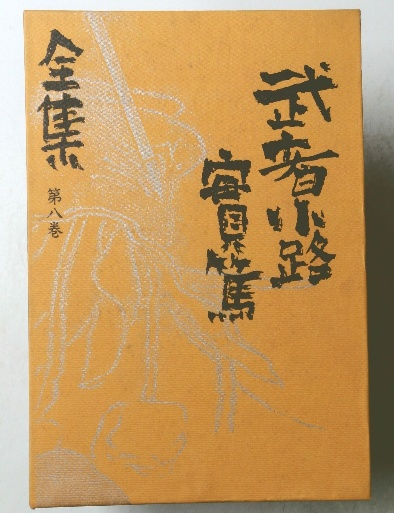 武者小路
實篤
全集
第八巻